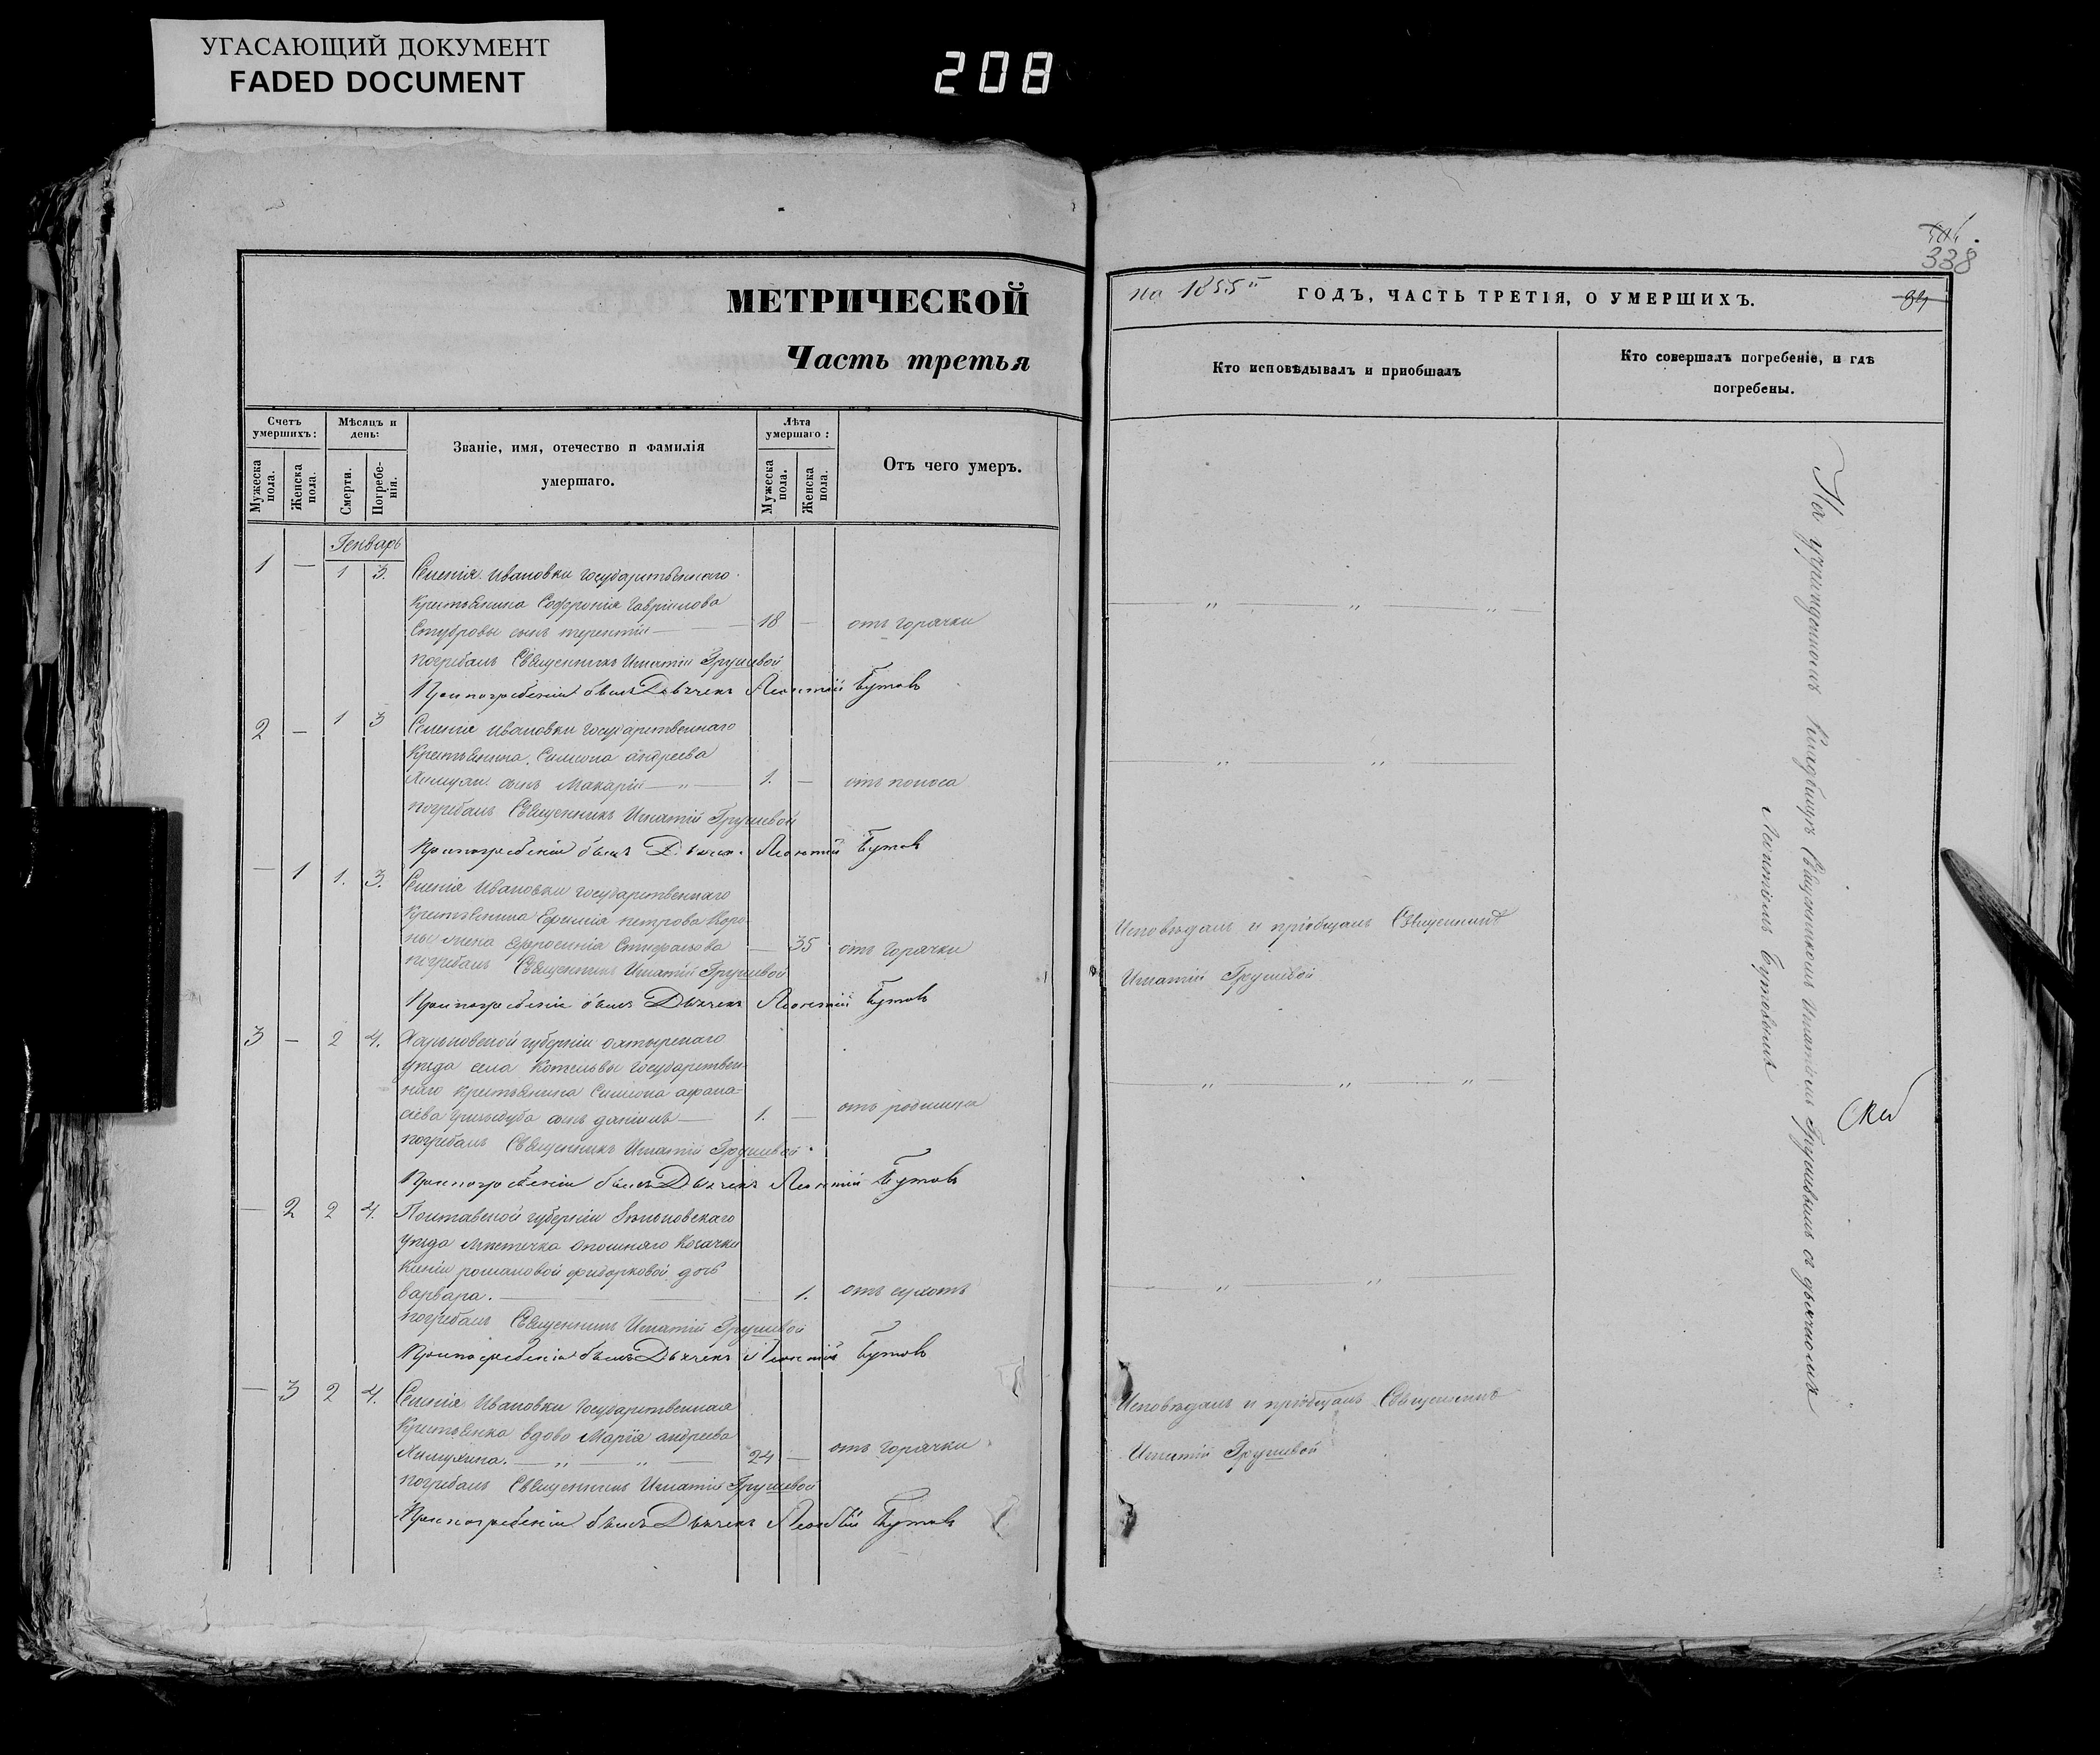 УГАСАЮЩИЙ ДОКУМЕНТ
FADED DOCUMENT
208
МЕТРИЧЕСКОЙ
Часть третья
Счетъ умершихъ:
Мужеска пола.
Женска пола.
Мѣсяцъ и день:
Смерти.
Погребенія.
Званіе, имя, отечество и фамилія
умершаго.
Лѣта умершаго:
Мужеска пола.
Женска пола.
Отъ чего умеръ.
Генварь
1 — 1 3. Селенія Ивановки Государственнаго
Крестьянина Софронія Гавріилова
сынъ терентій — 18 — отъ горячки
погребалъ Священникъ Игнатій Грушевой
При погребеніи былъ Дьячекъ Леонтій Бутовъ
2 — 1 3 Селенія Ивановки Государственнаго
Крестьянина Симеона андреева
сынъ Макарій — „ — 1. — отъ поноса
погребалъ Священникъ Игнатій Грушевой
При погребеніи былъ Дьячекъ Леонтій Бутовъ
— 1 1. 3. Селенія Ивановки Государственнаго
Крестьянина Ефимія петрова
жена Ефросинія — 35 отъ горячки
погребалъ Священникъ Игнатій Грушевой
При погребеніи былъ Дьячекъ Леонтій Бутовъ
3 — 2 4. Харьковской губерніи ахтырскаго
уѣзда села Котельвы Государствен-
наго крестьянина Симеона афана-
сіева сынъ даніилъ — 1. — отъ родимца
погребалъ Священникъ Игнатій Грушевой
При погребеніи былъ Дьячекъ Леонтій Бутовъ
— 2 2 4. Полтавской губерніи Зѣньковскаго
уѣзда мѣстечка опошняго Козачки
Ксеніи романовой дочь
варвара. — 1. отъ сухотъ
погребалъ Священникъ Игнатій Грушевой
При погребеніи былъ Дьячекъ Леонтій Бутовъ
— 3 2 4. Селенія Ивановки Государственная
Крестьянка вдова Марія андреева
— „ — „ — 24 — отъ горячки
погребалъ Священникъ Игнатій Грушевой
При погребеніи былъ Дьячекъ Леонтій Бутовъ
338
на 1855й ГОДЪ, ЧАСТЬ ТРЕТІЯ, О УМЕРШИХЪ.
Кто исповѣдывалъ и приобщалъ
Кто совершалъ погребеніе, и гдѣ
погребены.
— „ — „ — „ —
— „ — „ —
Исповѣдалъ и пріобщалъ Священникъ
Игнатій Грушевой
— „ — „ — „ —
— „ — „ —
Исповѣдалъ и пріобщалъ Священникъ
Игнатій Грушевой
На учрежденномъ Кладбищѣ Священникомъ Игнатіемъ Грушевымъ съ дьячкомъ
Леонтіемъ Бутовымъ